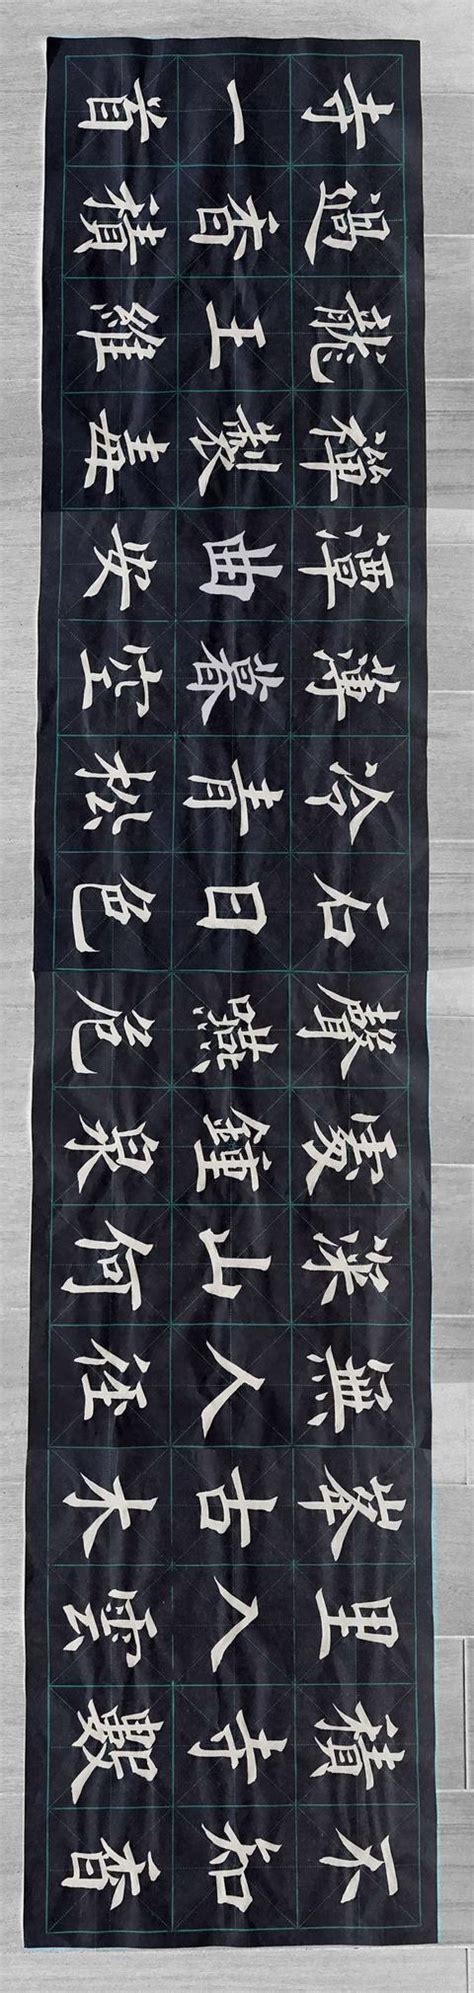 不知香
積寺數
里入雲
峯古木
無人徑
深山何
處鍾泉
聲嚥危
石日色
冷青松
薄暮空
潭曲安
禪製毒
龍王維
過香積
寺一首